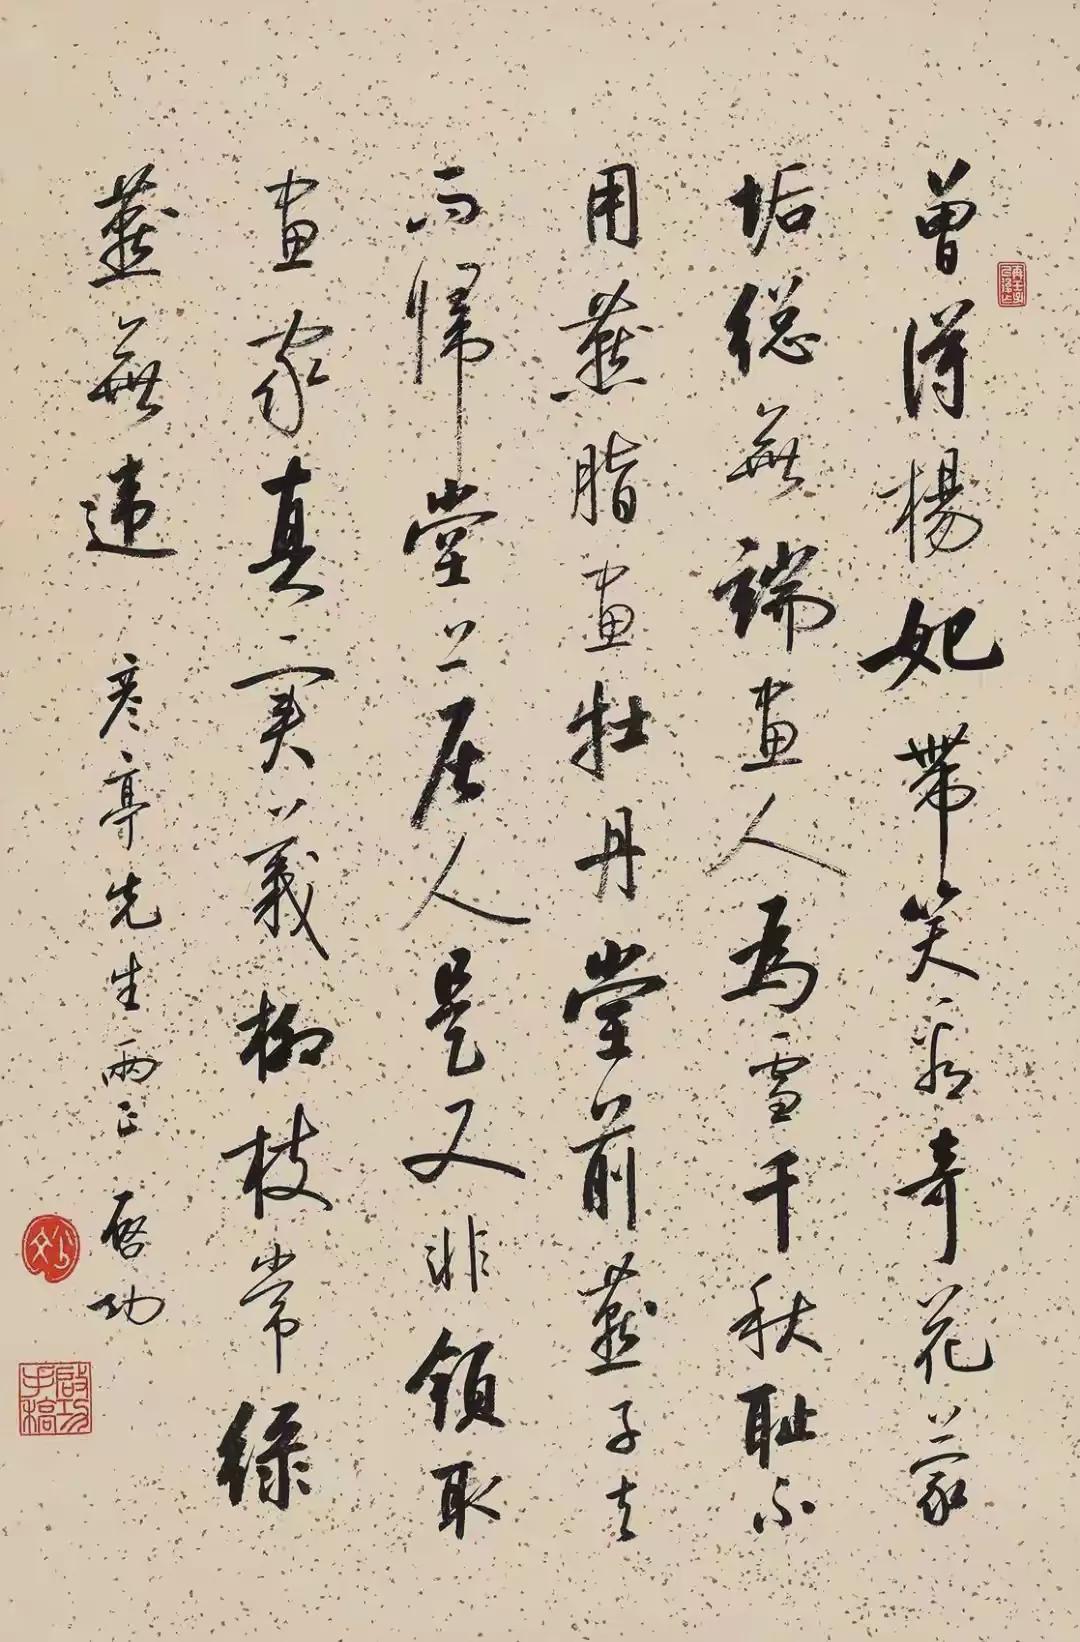 曾得楊妃帶笑看奇花蒙
垢緫無端畫人為雪千秋耻不
用燕脂畫牡丹堂前燕子去
而歸堂上居人是又非領取
畫家真實義柳枝常綠
燕無違 彥亭先生兩正 啟功
啟功手稿